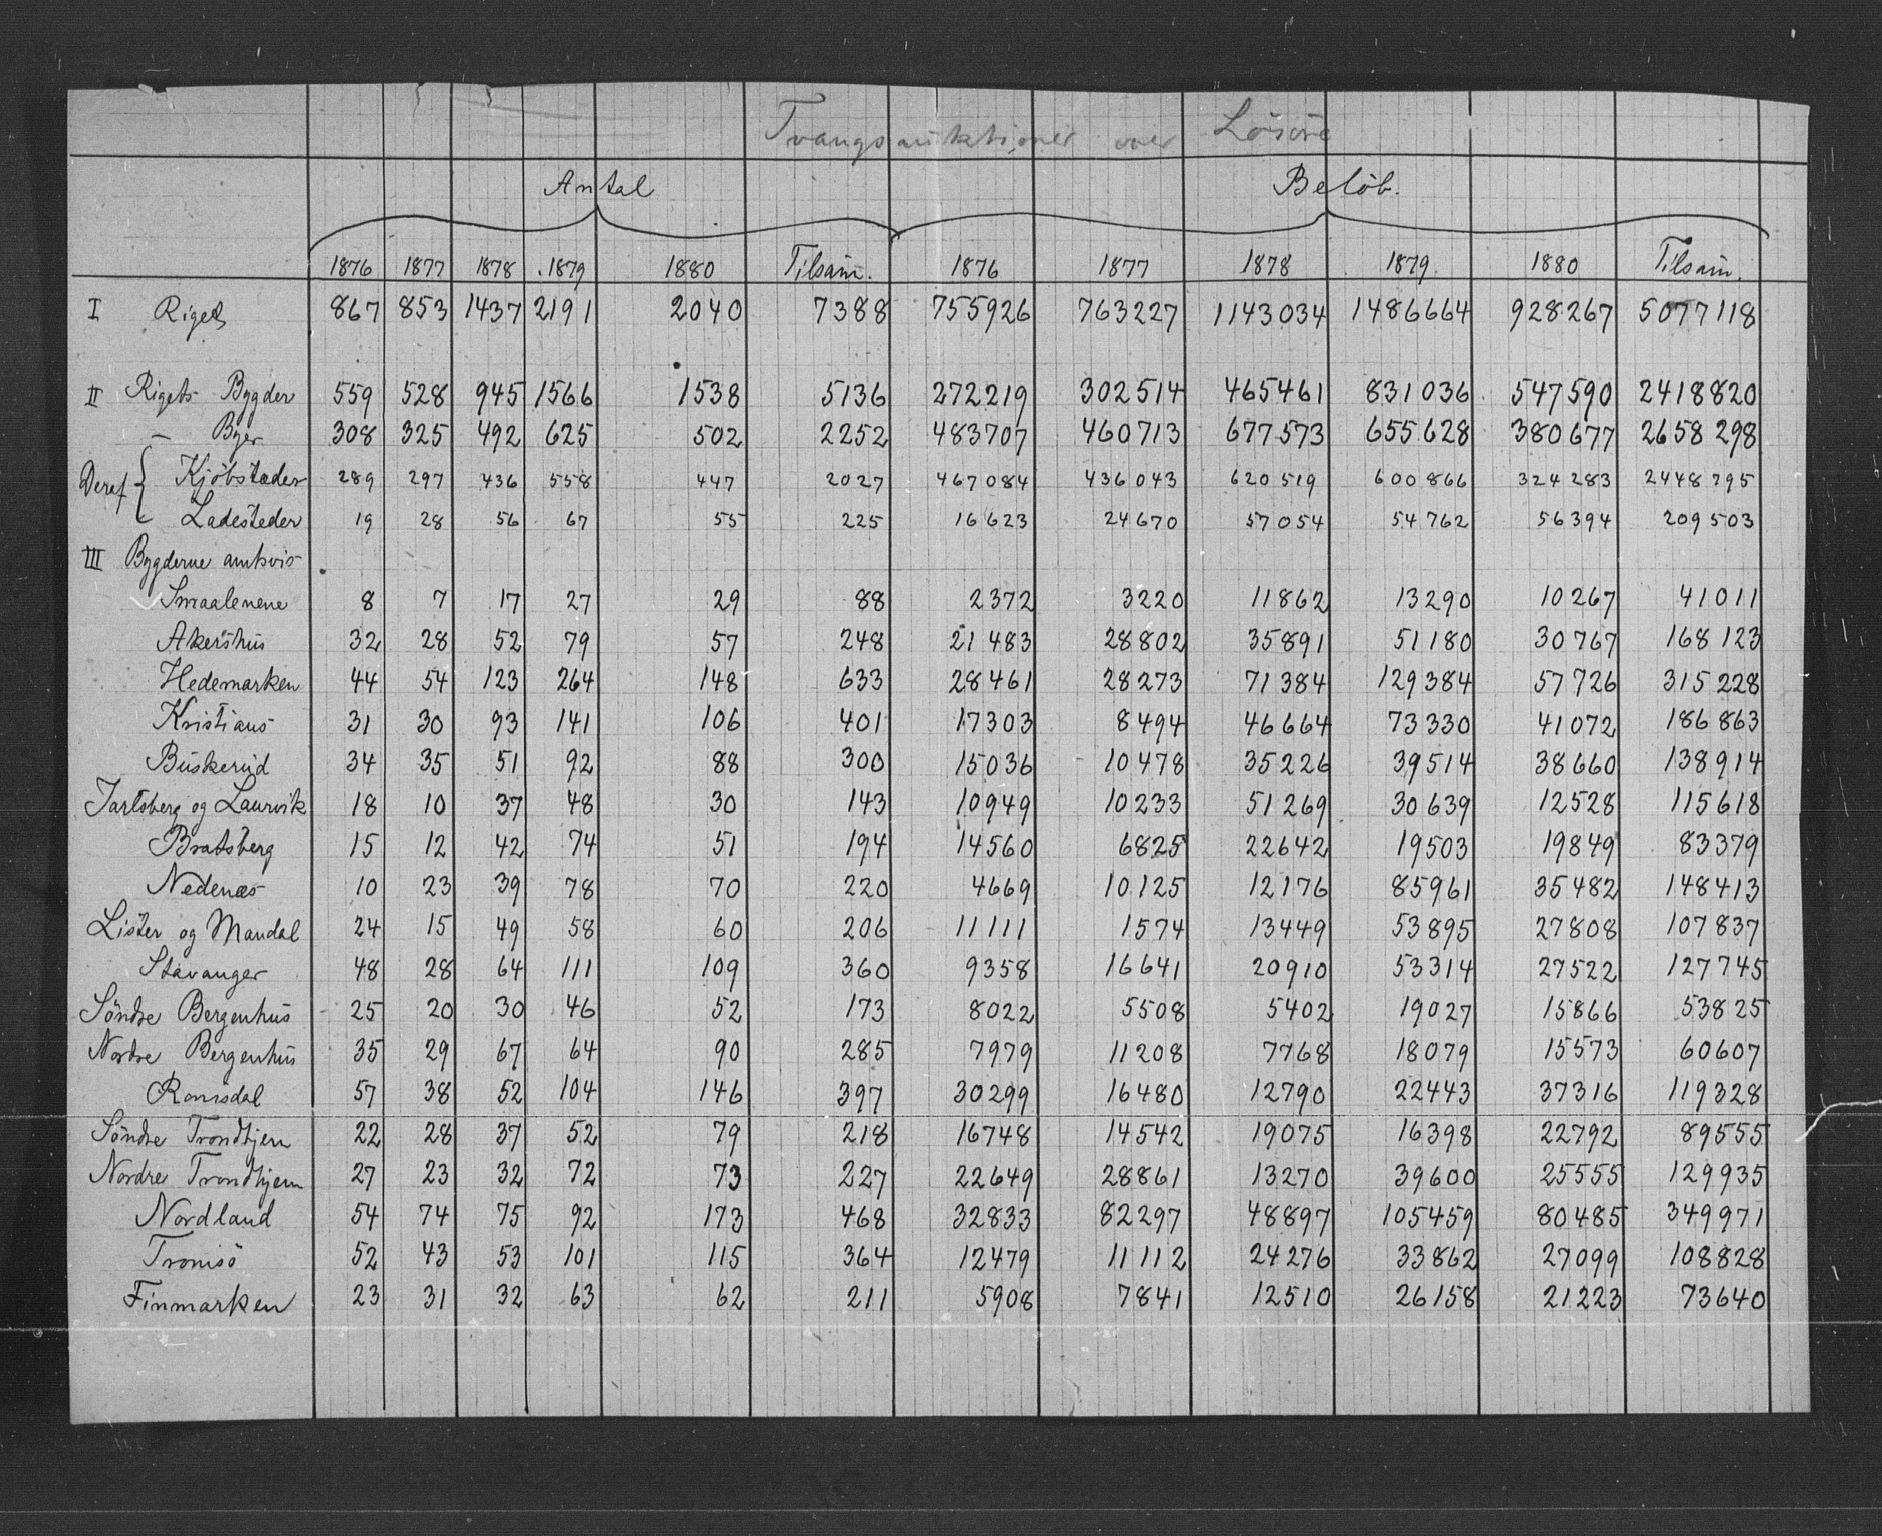 Tvangsauktioner over Lösöre
Antal Belöb.
1876 1877 1878 1879 1880 Tilsam. 1876 1877 1878 1879 1880 Tilsam.
I Riget 867 853 1437 2191 2040 7388 755926 763227 1143034 1486664 928267 5077118
II Rigets Bygder 559 528 945 1566 1538 5136 272219 302514 465461 831036 547590 2418820
— Byer 308 325 492 625 502 2252 483707 460713 677573 655628 380677 2658298
Deraf { Kjöbstæder 289 297 436 558 447 2027 467084 436043 620519 600866 324283 2448795
Ladesteder 19 28 56 67 55 225 16623 24670 57054 54762 56394 209503
III Bygderne amtsvis
Smaalenene 8 7 17 27 29 88 2372 3220 11862 13290 10267 41011
Akershus 32 28 52 79 57 248 21483 28802 35891 51180 30767 168123
Hedemarken 44 54 123 264 148 633 28461 28273 71384 129384 57726 315228
Kristians 31 30 93 141 106 401 17303 8494 46664 73330 41072 186863
Buskerud 34 35 51 92 88 300 15036 10478 35226 39514 38660 138914
Jarlsberg og Laurvik 18 10 37 48 30 143 10949 10233 51269 30639 12528 115618
Bratsberg 15 12 42 74 51 194 14560 6825 22642 19503 19849 83379
Nedenæs 10 23 39 78 70 220 4669 10125 12176 85961 35482 148413
Lister og Mandal 24 15 49 58 60 206 11111 1574 13449 53895 27808 107837
Stavanger 48 28 64 111 109 360 9358 16641 20910 53314 27522 127745
Söndre Bergenhus 25 20 30 46 52 173 8022 5508 5402 19027 15866 53825
Nordre Bergenhus 35 29 67 64 90 285 7979 11208 7768 18079 15573 60607
Romsdal 57 38 52 104 146 397 30299 16480 12790 22443 37316 119328
Söndre Trondhjem 22 28 37 52 79 218 16748 14542 19075 16398 22792 89555
Nordre Trondhjem 27 23 32 72 73 227 22649 28861 13270 39600 25555 129935
Nordland 54 74 75 92 173 468 32833 82297 48897 105459 80485 349971
Tromsö 52 43 53 101 115 364 12479 11112 24276 33862 27099 108828
Finmarken 23 31 32 63 62 211 5908 7841 12510 26158 21223 73640